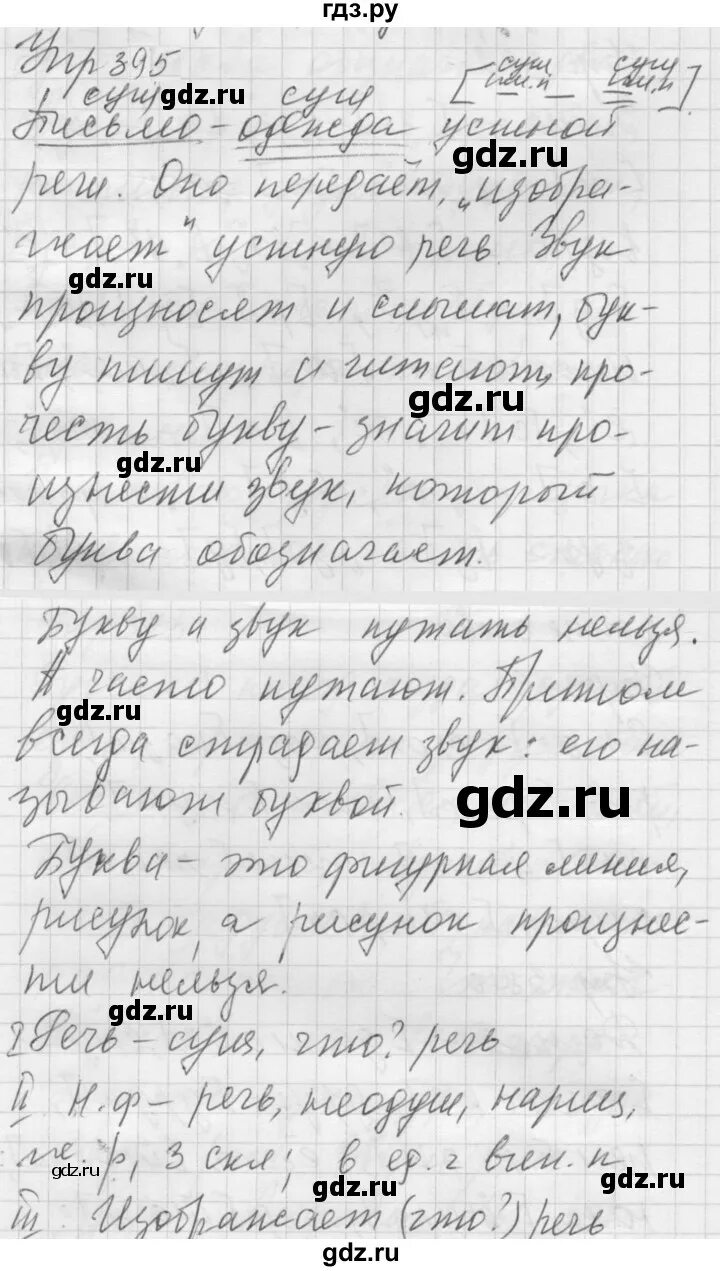 гдз.ру
Упр 395
сущ сущ [сущ им.п — сущ им.п].
Письмо - одежда устной
речи. Оно передаёт, „изобра-
жает" устную речь. Звук
произносят и слышат, бук-
ву пишут и читают, про-
честь букву - значит про-
изнести звук, который
буква обозначает.
Букву и звук путать нельзя.
А часто путают. Притом
всегда страдает звук: его на-
зывают буквой.
Буква - это фигурная линия,
рисунок, а рисунок произнес-
ти нельзя.
I Речь - сущ, что? речь
II Н.ф - речь, неодуш, нариц,
же.р, 3 скл; в ед.ч вин.п
III. Изображает (что?) речь
gdz.ru
gdz.ru
gdz.ru
gdz.ru
gdz.ru
gdz.ru
gdz.ru
gdz.ru
gdz.ru
gdz.ru
gdz.ru
gdz.ru
gdz.ru